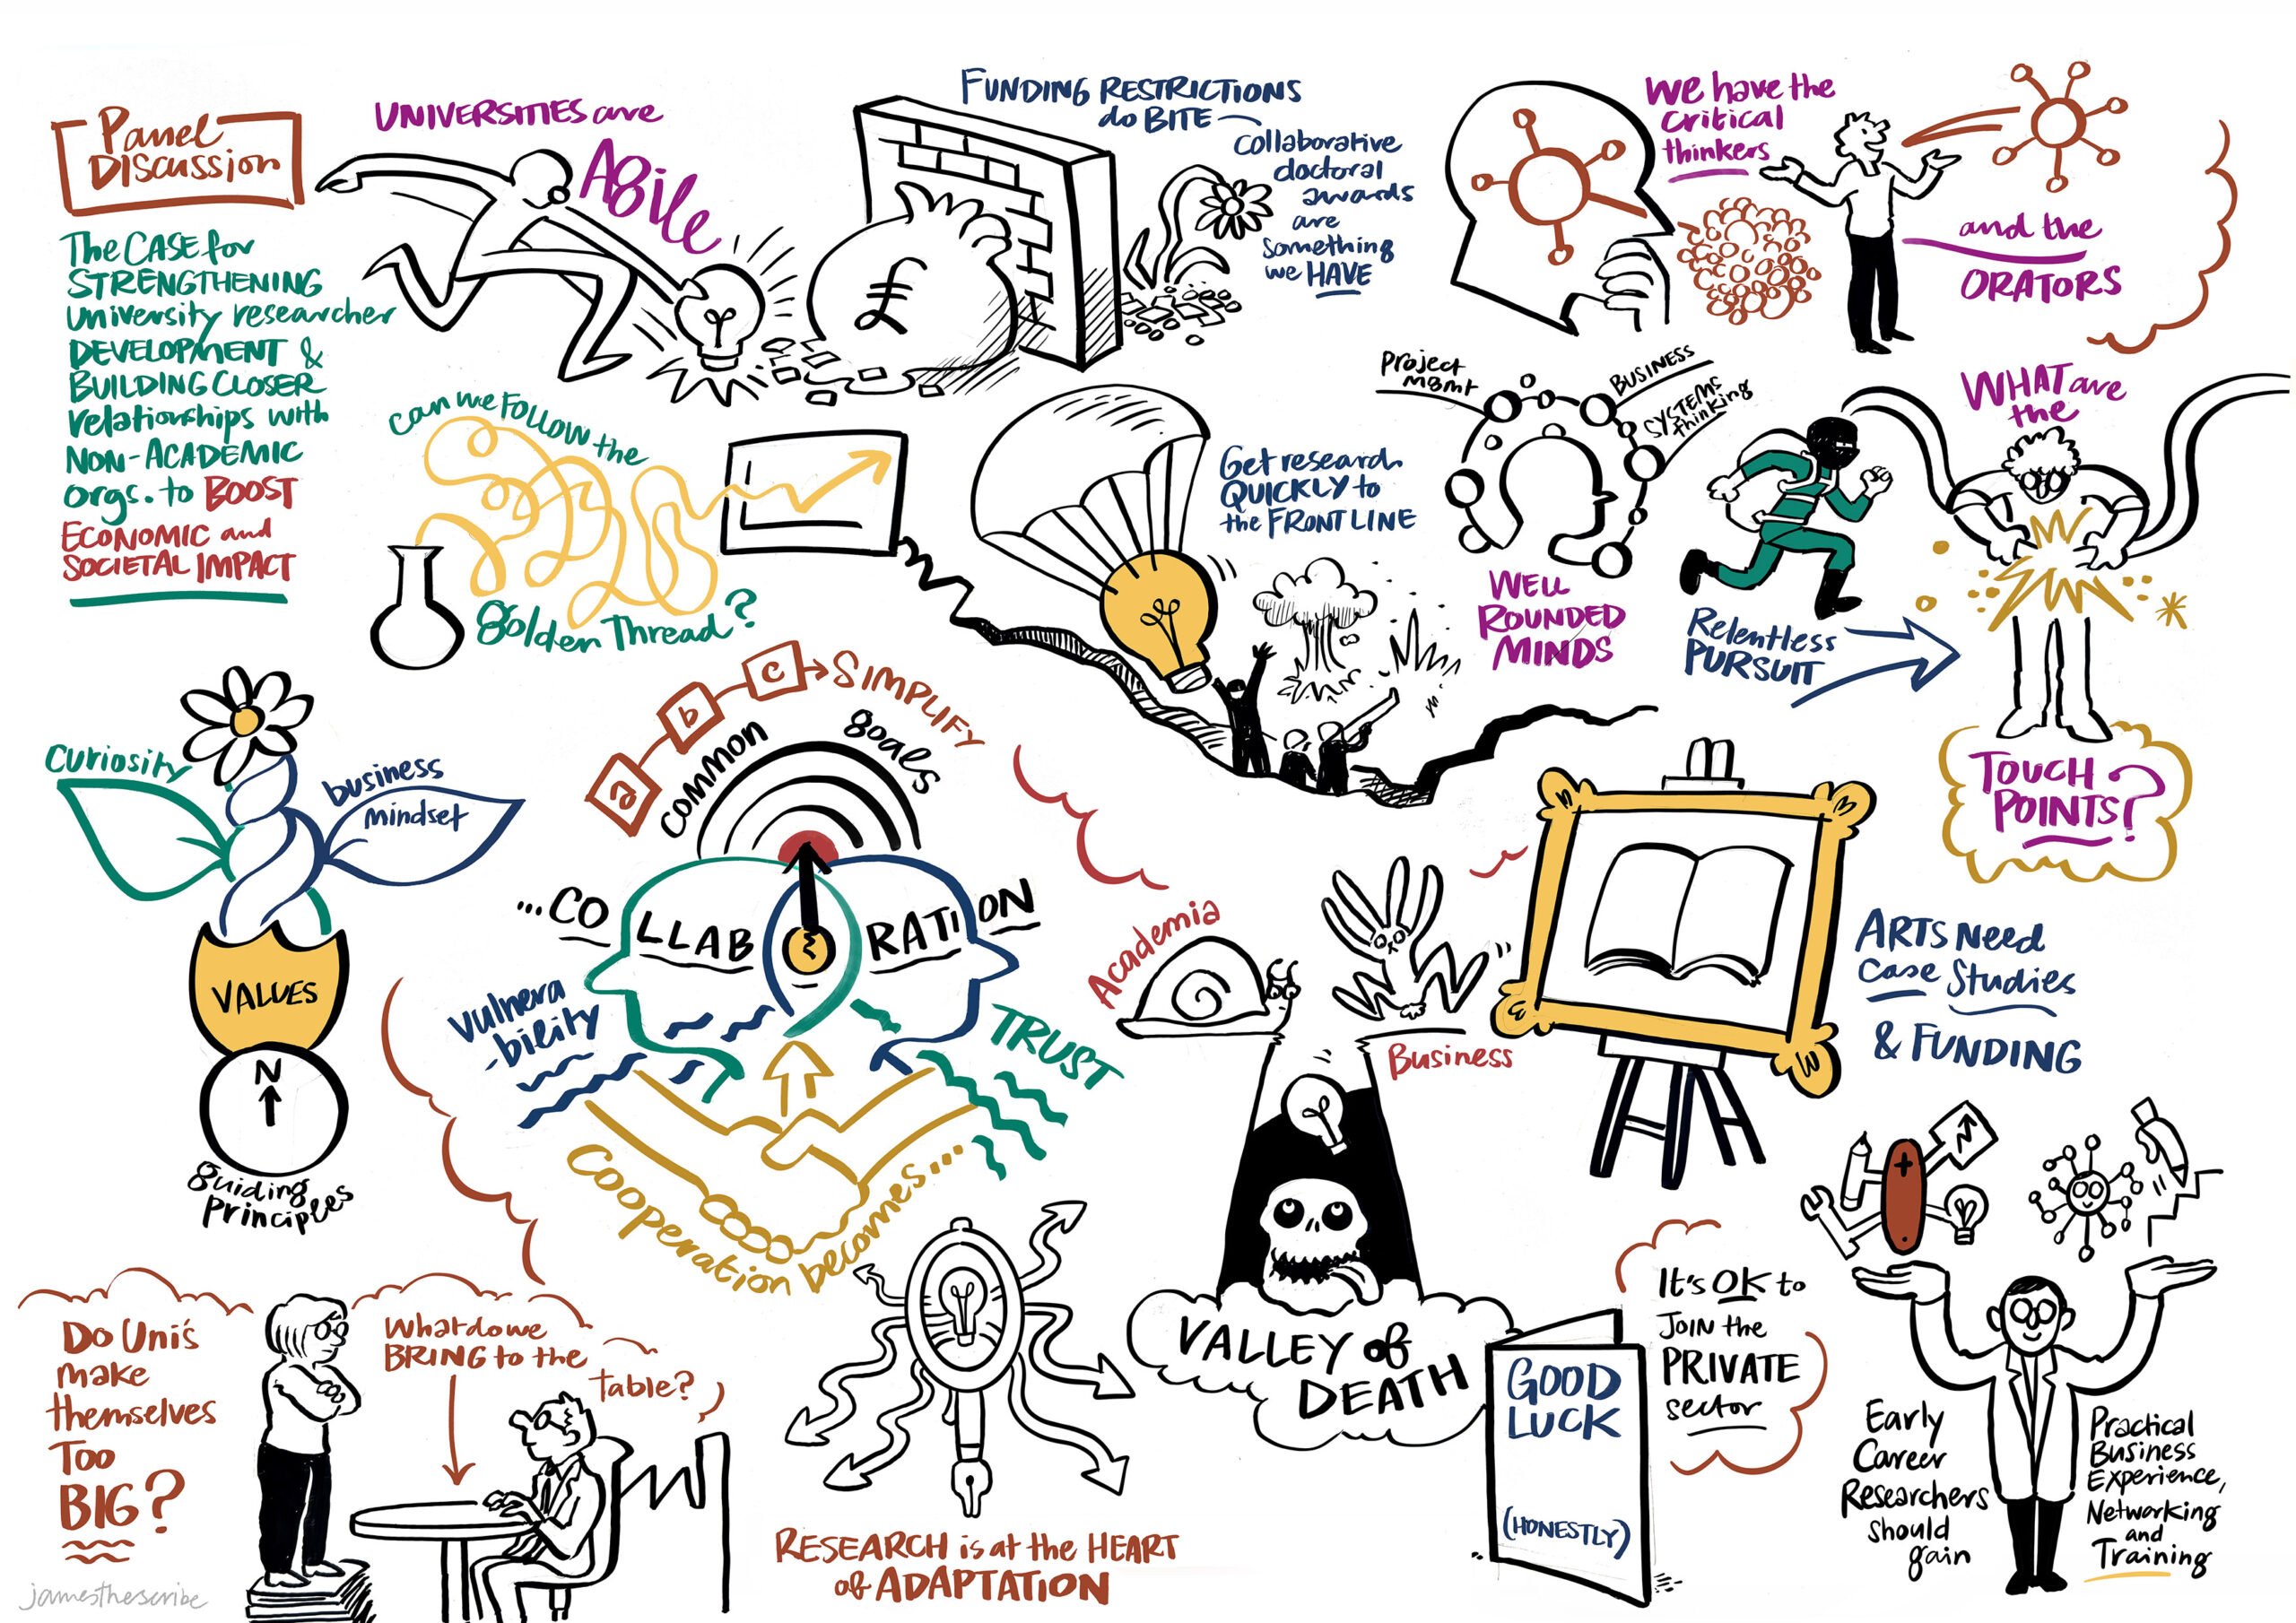 Panel
Discussion
The CASE for
STRENGTHENING
University researcher
DEVELOPMENT &
BUILDING CLOSER
relationships with
NON-ACADEMIC
orgs. to BOOST
ECONOMIC and
SOCIETAL IMPACT
UNIVERSITIES are
Agile
£
FUNDING RESTRICTIONS
do BITE
collaborative
doctoral
awards
are
something
we HAVE
We have the
critical
thinkers
and the
ORATORS
can we FOLLOW the
golden Thread?
Get research
QUICKLY to
the FRONT LINE
Project
Mgmt
BUSINESS
SYSTEMS
thinking
WELL
ROUNDED
MINDS
Relentless
PURSUIT
WHAT are
the
TOUCH
POINTS?
curiosity
business
mindset
VALUES
N
guiding
principles
a
b
c
SIMPLIFY
common
goals
...COLLABRATION
Vulnera
-bility
TRUST
Cooperation becomes...
Academia
Business
VALLEY of
DEATH
ARTS Need
Case Studies
& FUNDING
Do Uni's
make
themselves
Too
BIG?
What do we
BRING to the
table?
RESEARCH is at the HEART
of ADAPTATION
GOOD
LUCK
(HONESTLY)
It's OK to
JOIN the
PRIVATE
sector
N
Early
Career
Researchers
should
gain
Practical
Business
Experience,
Networking
and
Training
jamesthescribe